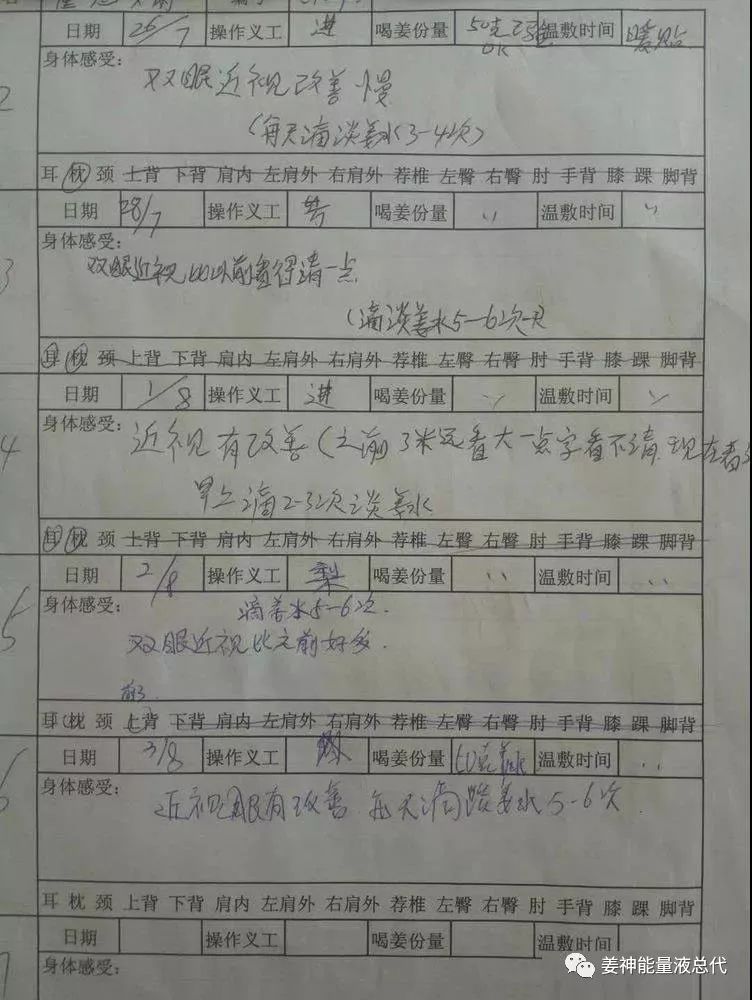 日期 26/7 操作义工 进 喝姜份量 50克 温敷时间 暖贴
OK
2
身体感受:
双眼近视改善慢
(每天滴淡姜水3-4次)
耳 枕 颈 上背 下背 肩内 左肩外 右肩外 荐椎 左臀 右臀 肘 手背 膝 踝 脚背
日期 28/7 操作义工 芳 喝姜份量 〃 温敷时间 〃
3
身体感受:
双眼近视比以前看得清一点
(滴淡姜水5-6次一天
耳 枕 颈 上背 下背 肩内 左肩外 右肩外 荐椎 左臀 右臀 肘 手背 膝 踝 脚背
日期 1/8 操作义工 进 喝姜份量 〃 温敷时间 〃
4
身体感受:
近视有改善(之前3米远看大一点字看不清.现在看
早上滴2-3次淡姜水
耳 枕 颈 上背 下背 肩内 左肩外 右肩外 荐椎 左臀 右臀 肘 手背 膝 踝 脚背
日期 2/8 操作义工 梨 喝姜份量 〃 温敷时间 〃
5
身体感受:
滴姜水5-6次.
双眼近视比之前好多.
耳 枕 颈 上背 下背 肩内 左肩外 右肩外 荐椎 左臀 右臀 肘 手背 膝 踝 脚背
日期 3/8 操作义工 喝姜份量 50克姜水 温敷时间 〃
6
身体感受:
近视眼有改善 每天滴 姜水5-6次
耳 枕 颈 上背 下背 肩内 左肩外 右肩外 荐椎 左臀 右臀 肘 手背 膝 踝 脚背
日期 操作义工 喝姜份量 温敷时间
7
身体感受:
姜神能量液总代